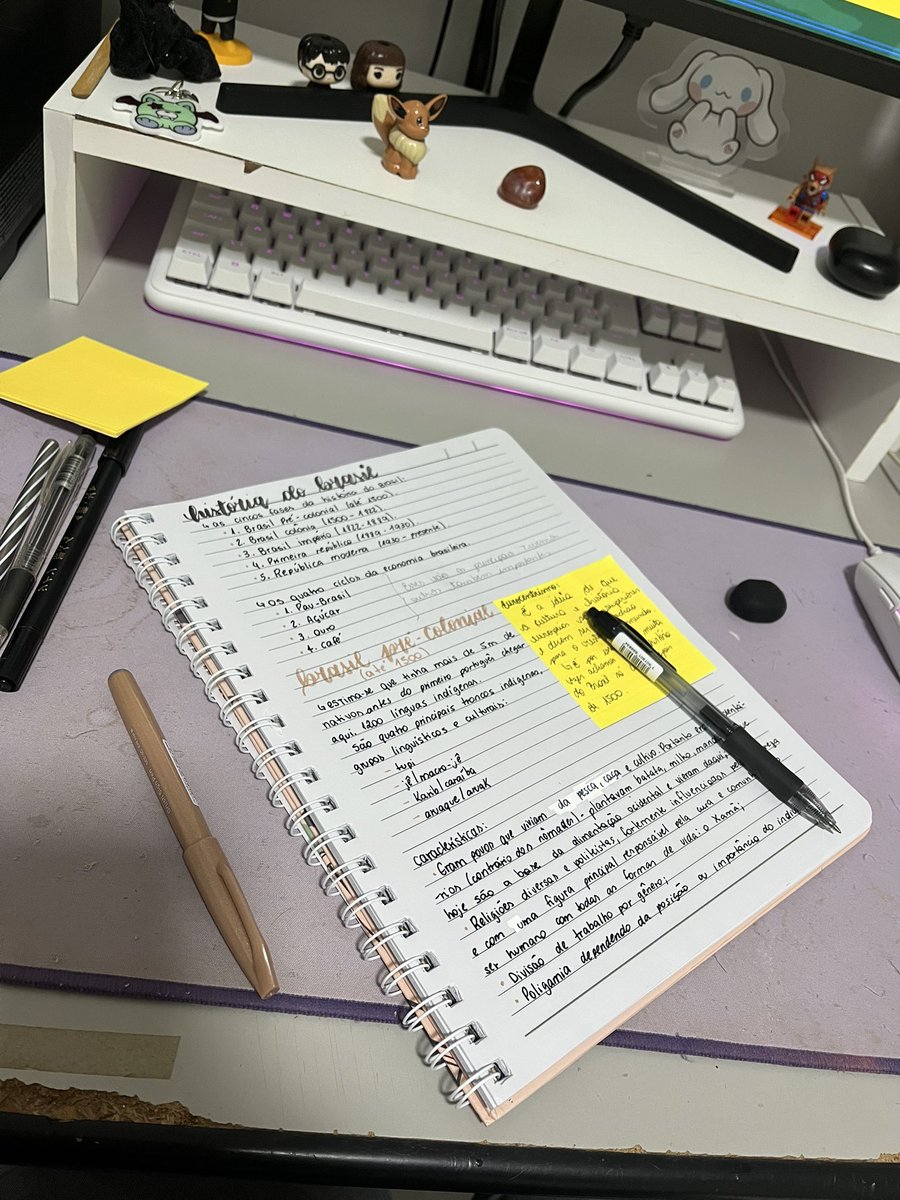 história do brasil
↳ as cinco fases da história do Brasil:
• 1. Brasil Pré-colonial (até 1500).
• 2. Brasil colônia (1500 - 1822).
• 3. Brasil império (1822-1889).
• 4. Primeira república (1889-1930).
• 5. República moderna (1930 - presente).
↳ Os quatro ciclos da economia brasileira
• 1. Pau-Brasil
• 2. Açúcar
• 3. Ouro
• 4. café
Esses são os principais
outros também importantes.
brasil pré-colonial
(até 1500)
↳ estima-se que tinha mais de 5m de
nativos antes do primeiro português chegar
aqui, 1200 línguas indígenas.
São quatro principais troncos indígenas,
grupos linguísticos e culturais:
- tupi
- jê/macro-jê
- Karib/caraíba
- aruaque/aruak
eurocentrismo:
é a ideia de que
a cultura e história
europeia
e devem
para o mundo.
↳ é por
que muita
gente acha
do Brasil só
de 1500.
características:
• Eram povos que viviam da pesca, caça e cultivo. Portanto eram
-rios (contrário dos nômades) - plantavam batata, milho,
hoje são a base da alimentação ocidental e vieram daqui;
• Religiões diversas e politeístas, fortemente influenciadas pela
e com uma figura principal responsável pela cura e
ser humano com todas as formas de vida: o Xamã;
• Divisão de trabalho por gênero;
• Poligamia dependendo da posição ou importância do